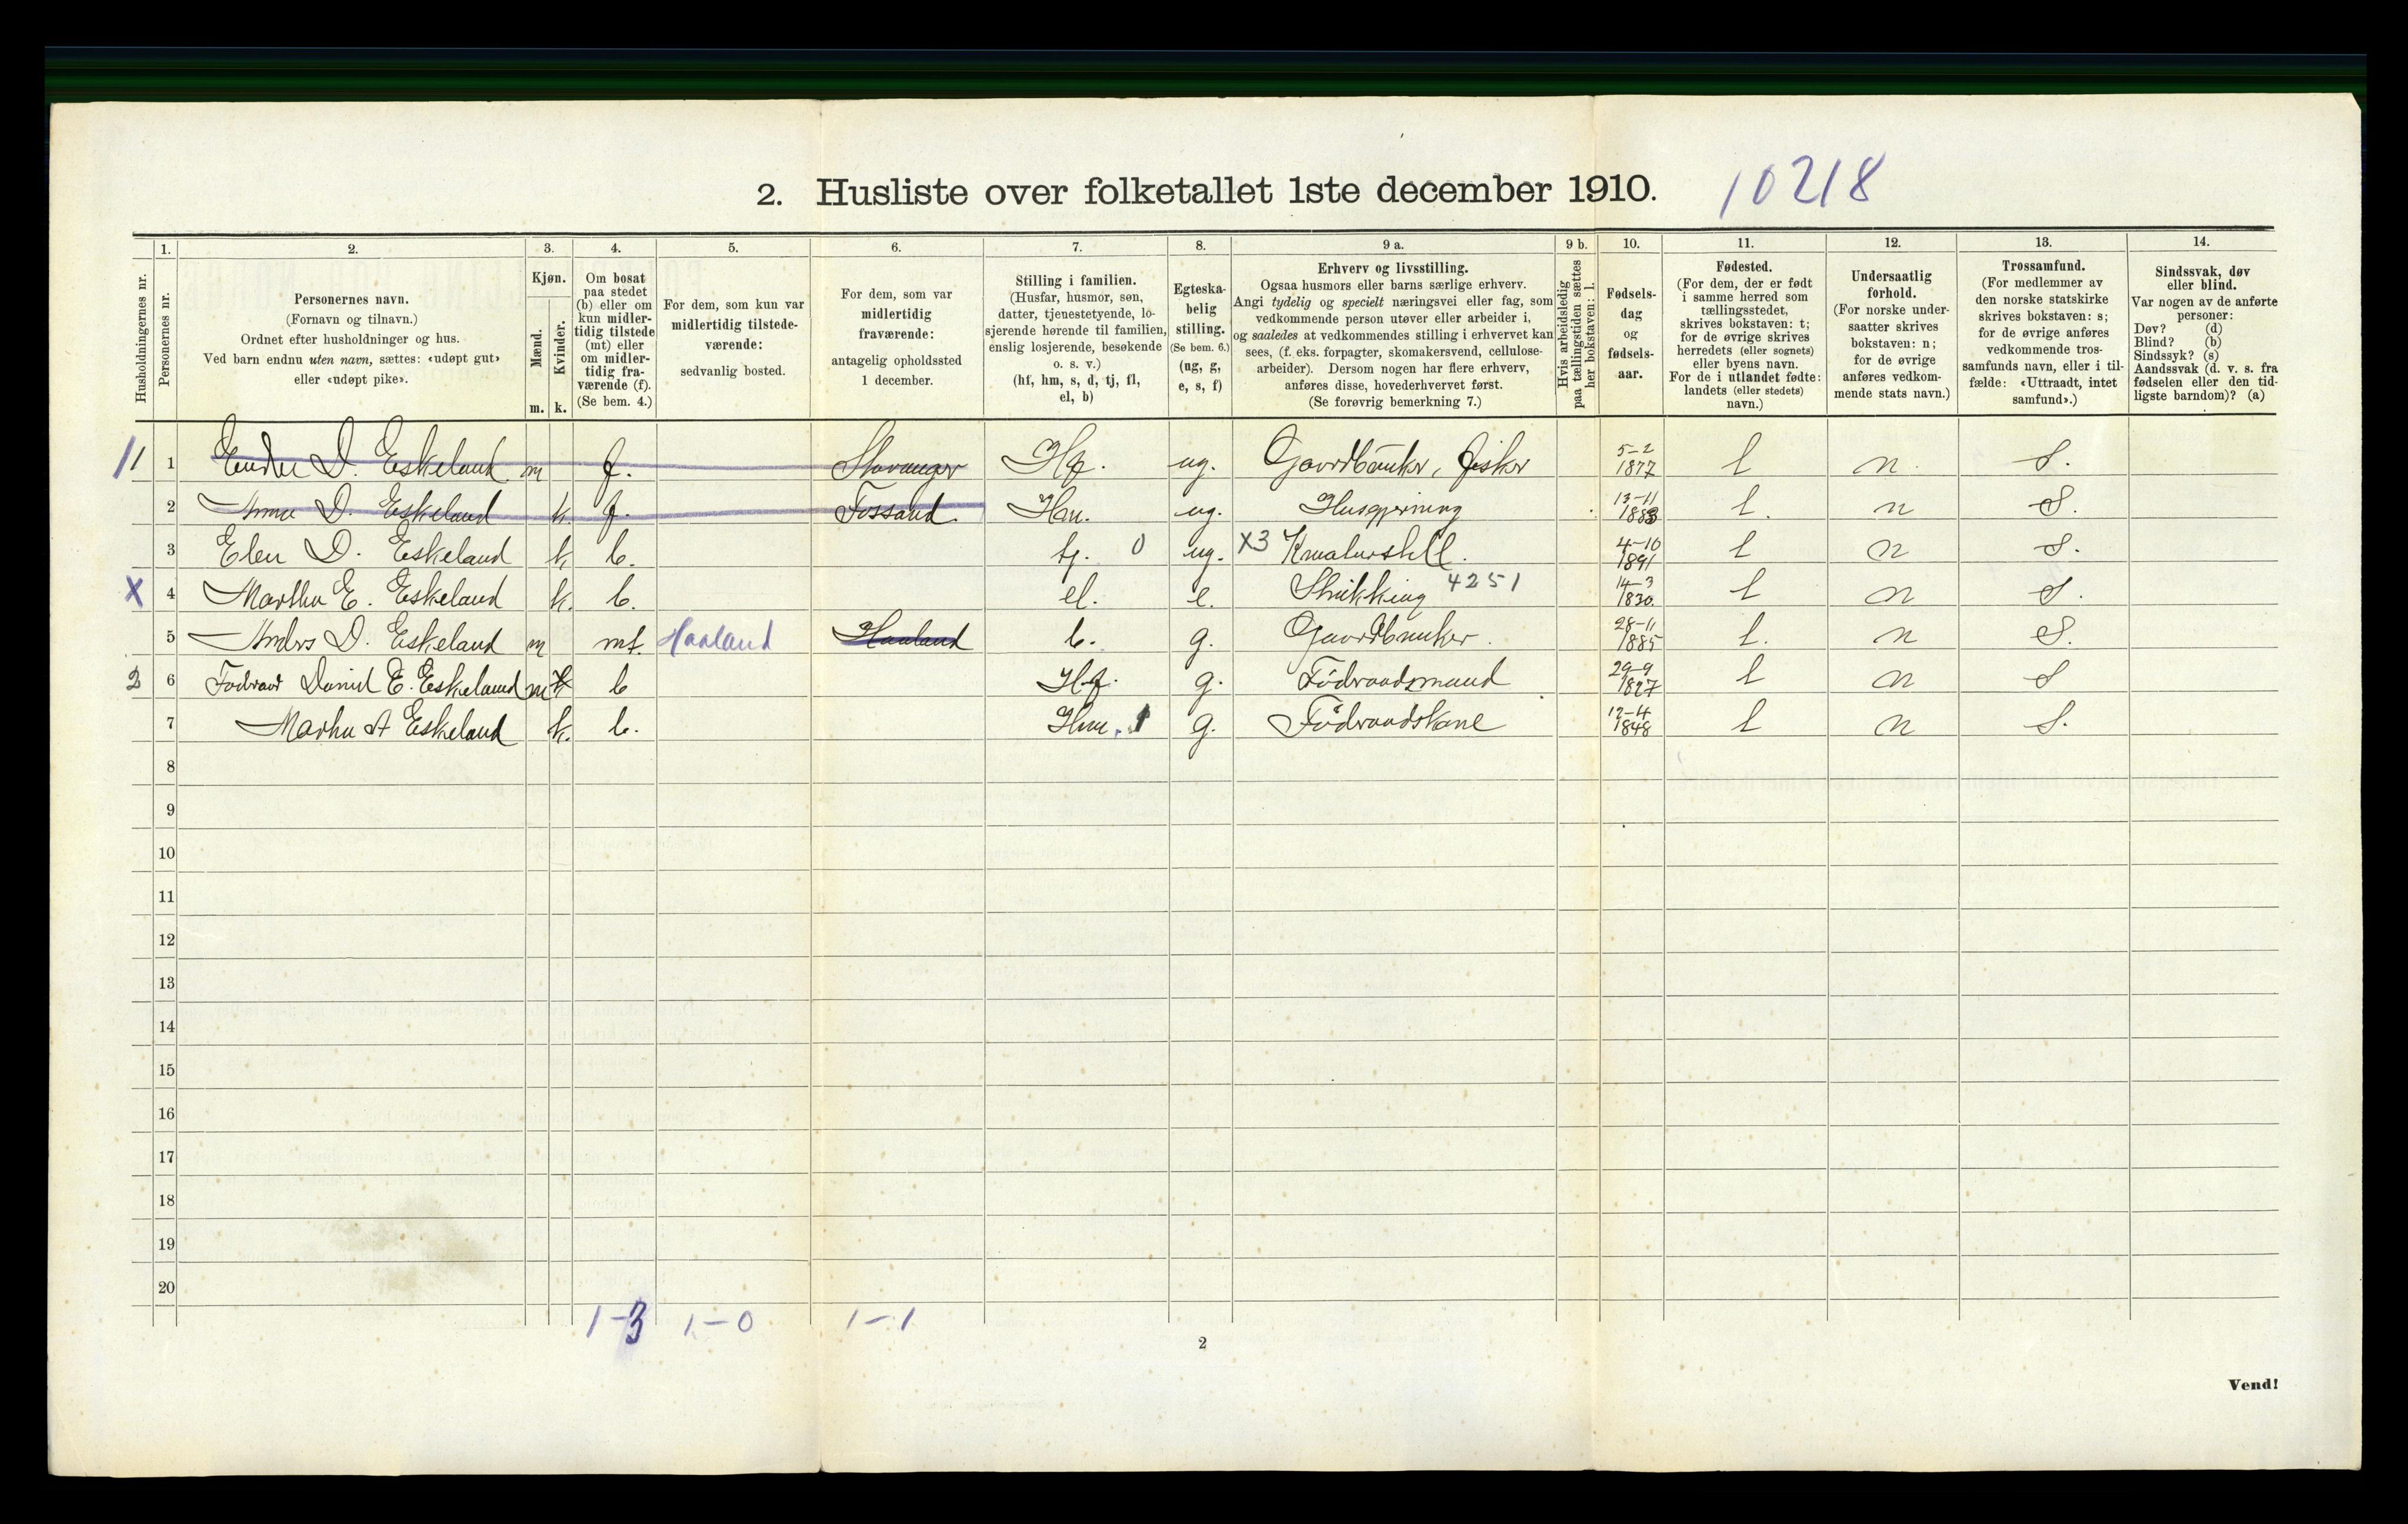 2. Husliste over folketallet 1ste december 1910. 10218
Husholdningernes nr.
1.
Personernes nr.
2.
Personernes navn.
(Fornavn og tilnavn.)
Ordnet efter husholdninger og hus.
Ved barn endnu uten navn, sættes: «udøpt gut»
eller «udøpt pike».
3.
Kjøn.
Mænd.
Kvinder.
m. k.
4.
Om bosat
paa stedet
(b) eller om
kun midler-
tidig tilstede
(mt) eller
om midler-
tidig fra-
værende (f).
(Se bem. 4.)
5.
For dem, som kun var
midlertidig tilstede-
værende:
sedvanlig bosted.
6.
For dem, som var
midlertidig
fraværende:
antagelig opholdssted
1 december.
7.
Stilling i familien.
(Husfar, husmor, søn,
datter, tjenestetyende, lo-
sjerende hørende til familien,
enslig losjerende, besøkende
o. s. v.)
(hf, hm, s, d, tj, fl,
el, b)
8.
Egteska-
belig
stilling.
(Se bem. 6.)
(ug, g,
e, s, f)
9 a.
Erhverv og livsstilling.
Ogsaa husmors eller barns særlige erhverv.
Angi tydelig og specielt næringsvei eller fag, som
vedkommende person utøver eller arbeider i,
og saaledes at vedkommendes stilling i erhvervet kan
sees, (f. eks. forpagter, skomakersvend, cellulose-
arbeider). Dersom nogen har flere erhverv,
anføres disse, hovederhvervet først.
(Se forøvrig bemerkning 7.)
9 b.
Hvis arbeidsledig
paa tællingstiden sættes
her bokstaven: l.
10.
Fødsels-
dag
og
fødsels-
aar.
11.
Fødested.
(For dem, der er født
i samme herred som
tællingsstedet,
skrives bokstaven: t;
for de øvrige skrives
herredets (eller sognets)
eller byens navn.
For de i utlandet fødte:
landets (eller stedets)
navn.)
12.
Undersaatlig
forhold.
(For norske under-
saatter skrives
bokstaven: n;
for de øvrige
anføres vedkom-
mende stats navn.)
13.
Trossamfund.
(For medlemmer av
den norske statskirke
skrives bokstaven: s;
for de øvrige anføres
vedkommende tros-
samfunds navn, eller i til-
fælde: «Uttraadt, intet
samfund».)
14.
Sindssvak, døv
eller blind.
Var nogen av de anførte
personer:
Døv? (d)
Blind? (b)
Sindssyk? (s)
Aandssvak (d. v. s. fra
fødselen eller den tid-
ligste barndom)? (a)
1 1 D. Eskeland m f. Stavanger Hf. ug. Gaardbruker, fisker 5-2 1877 t n. S.
2 Anna D. Eskeland k. f. Fossand Hm. ug. Husgjerning 13-11 1883 t. n S.
3 Elen D. Eskeland k b. tj. 0 ug. X3 Kreaturstell. 4-10 1891 t n S.
X 4 Martha E. Eskeland k. b. el. e. Strikking 4251 14-3 1830. t n S.
5 Anders D. Eskeland m mt. Haaland Haaland b. g. Gaardbruker. 28-11 1885 t. n S.
2 6 Daniel E. Eskeland m k b Hf. g. Födraadsmand 29-9 1827 t n S
7 Martha A Eskeland k. b. Hm. 1 g. Födraadskone 12-4 1848 t n S.
8
9
10
11
12
13
14
15
16
17
18
19
20
1-3 1-0 1-1
2
Vend!